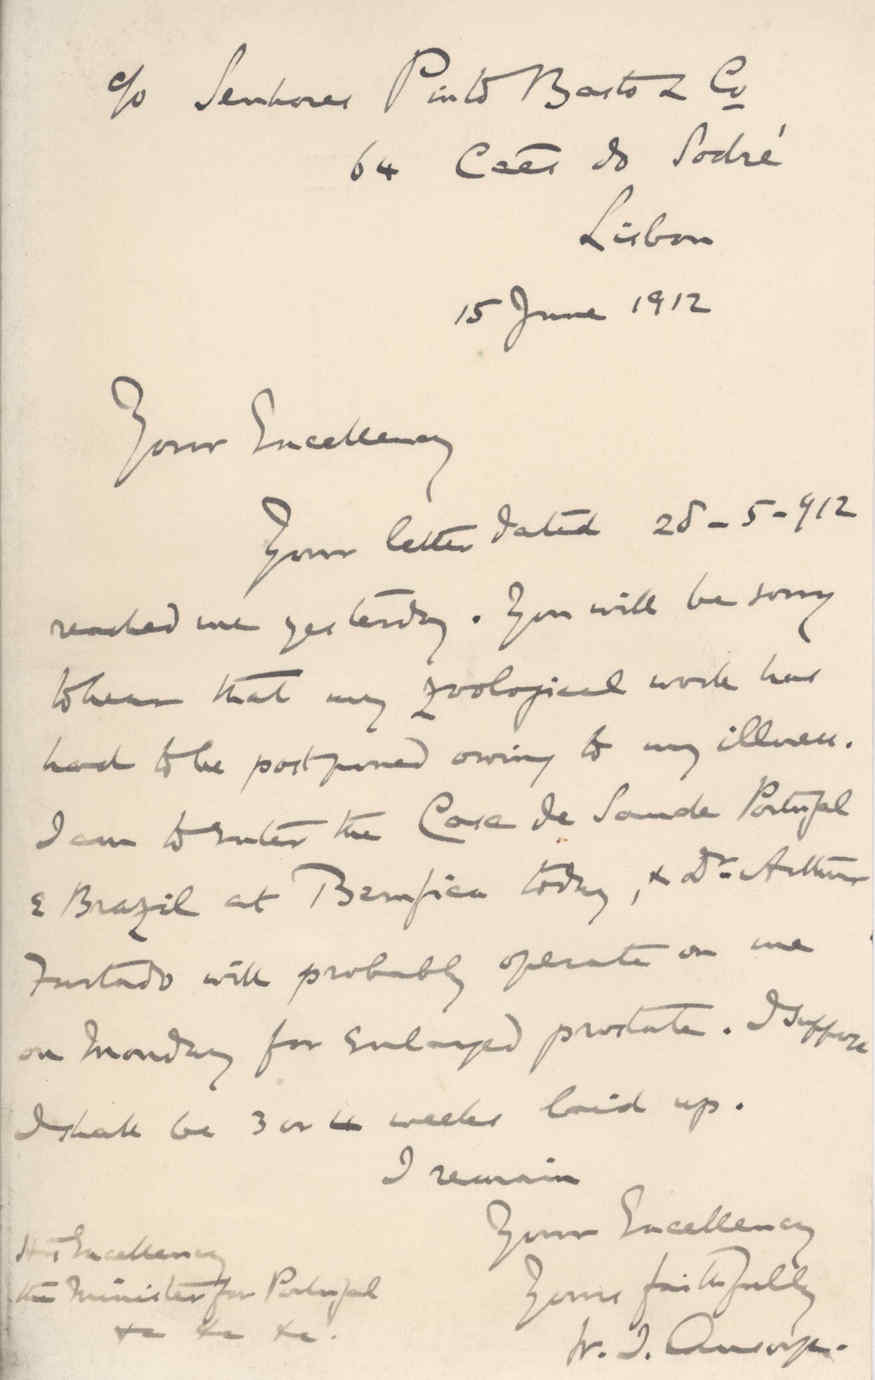 c/o Senhores Pinto Basto & Co
64 Caes do Sodré
Lisbon
15 June 1912
Your Excellency
Your letter dated 28-5-912
reached me yesterday. You will be sorry
to hear that my zoological work has
had to be postponed owing to my illness.
I am to enter the Casa de Saude Portugal
e Brazil at Bemfica today, & Dr. Arthur
Furtado will probably operate on me
on Monday for enlarged prostate. I suppose
I shall be 3 or 4 weeks laid up.
I remain
Your Excellency
Yours faithfully
W. J. Ansorge.
His Excellency
the Minister for Portugal
&c &c &c.